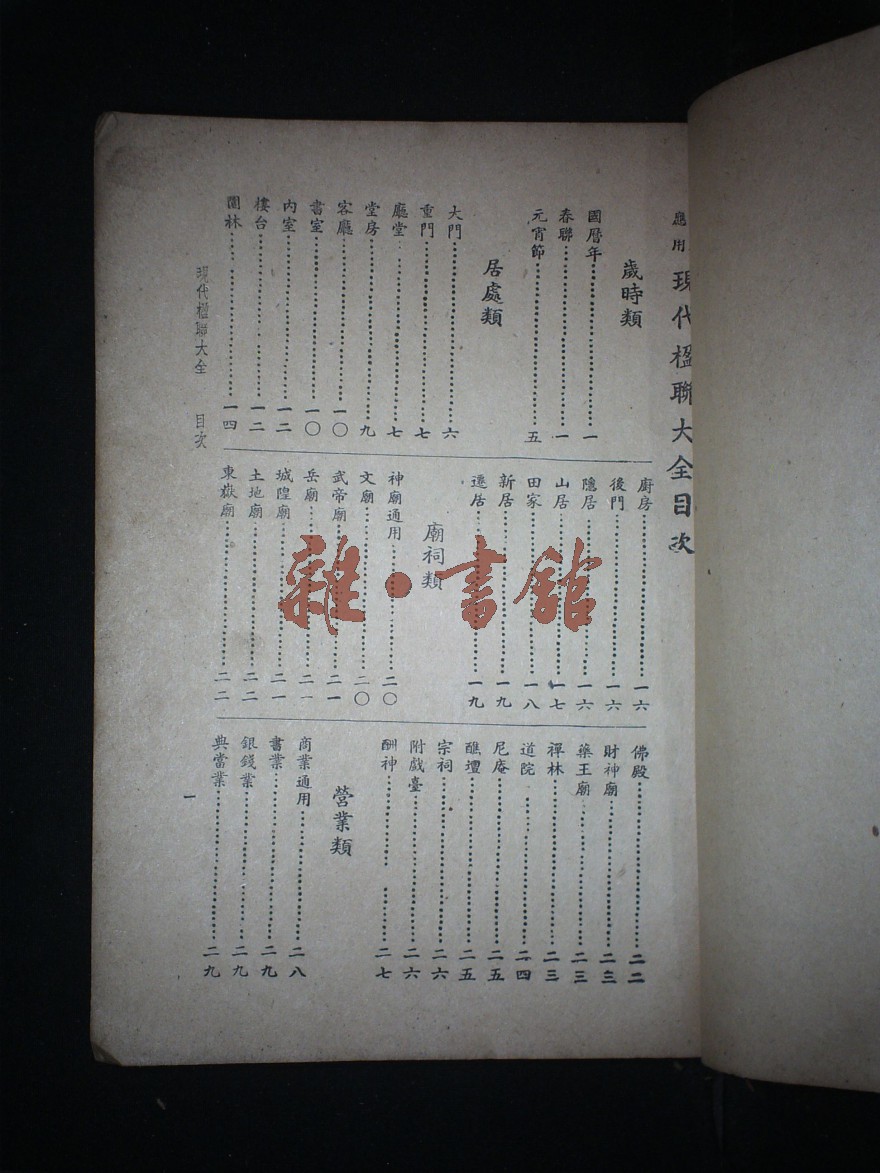 應用 現代楹聯大全目次
歲時類
國曆年 一
春聯 一
元宵節 五
居處類
大門 六
重門 七
廳堂 七
堂房 九
客廳 一〇
書室 一〇
內室 一二
樓台 一二
園林 一四
廚房 一六
後門 一六
隱居 一六
山居 一七
田家 一八
新居 一九
遷居 一九
廟祠類
神廟通用 二〇
文廟 二〇
武帝廟 二一
岳廟 二一
城隍廟 二一
土地廟 二二
東嶽廟 二二
佛殿 二二
財神廟 二三
藥王廟 二三
禪林 二三
道院 二四
尼庵 二五
醮壇 二五
宗祠 二六
附戲臺 二六
酬神 二七
營業類
商業通用 二八
書業 二九
銀錢業 二九
典當業 二九
現代楹聯大全 目次
一
雜·書館